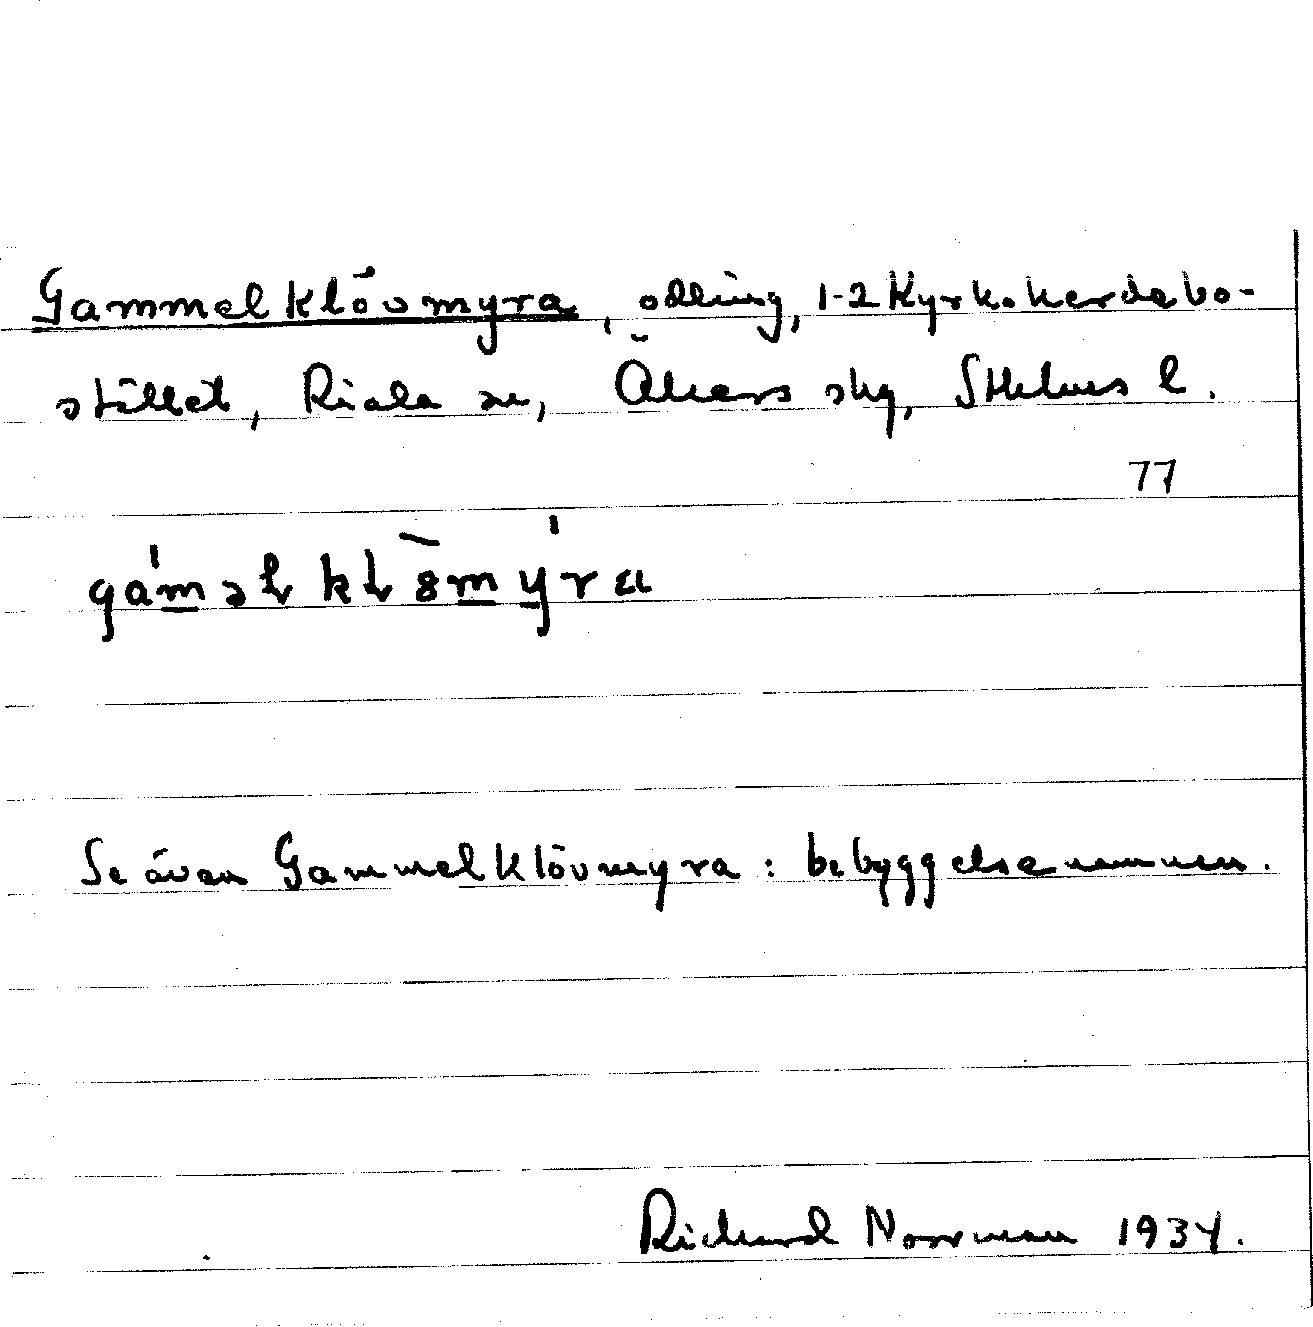 Gammelklövmyra, odling, 1-2 Kyrkoherdebo-
stället, Riala sn, Åkers skg, Sthlms l.
77
Se även Gammelklövmyra: bebyggelsenamnen.
Richard Norrman 1934.